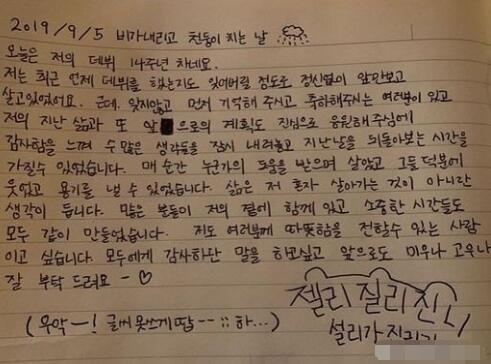 2019/9/5 비가내리고 천둥이 치는 날
오늘은 저의 데뷔 14주년 차네요.
저는 최근 언제 데뷔를 했는지도 잊어버릴 정도로 정신없이 앞만보고
살고있었어요. 근데, 잊지않고 먼저 기억해 주시고 축하해주시는 여러분이 있고
저의 지난 삶과 또 앞으로의 계획도 진심으로 응원해주심에
감사함을 느껴 수 많은 생각들을 잠시 내려놓고 지난날을 되돌아보는 시간을
가질수 있었습니다. 매 순간 누군가의 도움을 받으며 살았고 그들 덕분에
웃었고 용기를 낼 수 있었습니다. 삶은 저 혼자 살아가는 것이 아니란
생각이 듭니다. 많은 분들이 저의 곁에 함께 있고 소중한 시간들도
모두 같이 만들었습니다. 저도 여러분께 따뜻함을 전할수 있는 사람
이고 싶습니다. 모두에게 감사하단 말을 하고싶고 앞으로도 미우나 고우나
잘 부탁 드려요 - ♡
젤리 질리 진리
설리가 지리기
(윽악—! 글씨 못쓰게땁 -- ;; 하...)